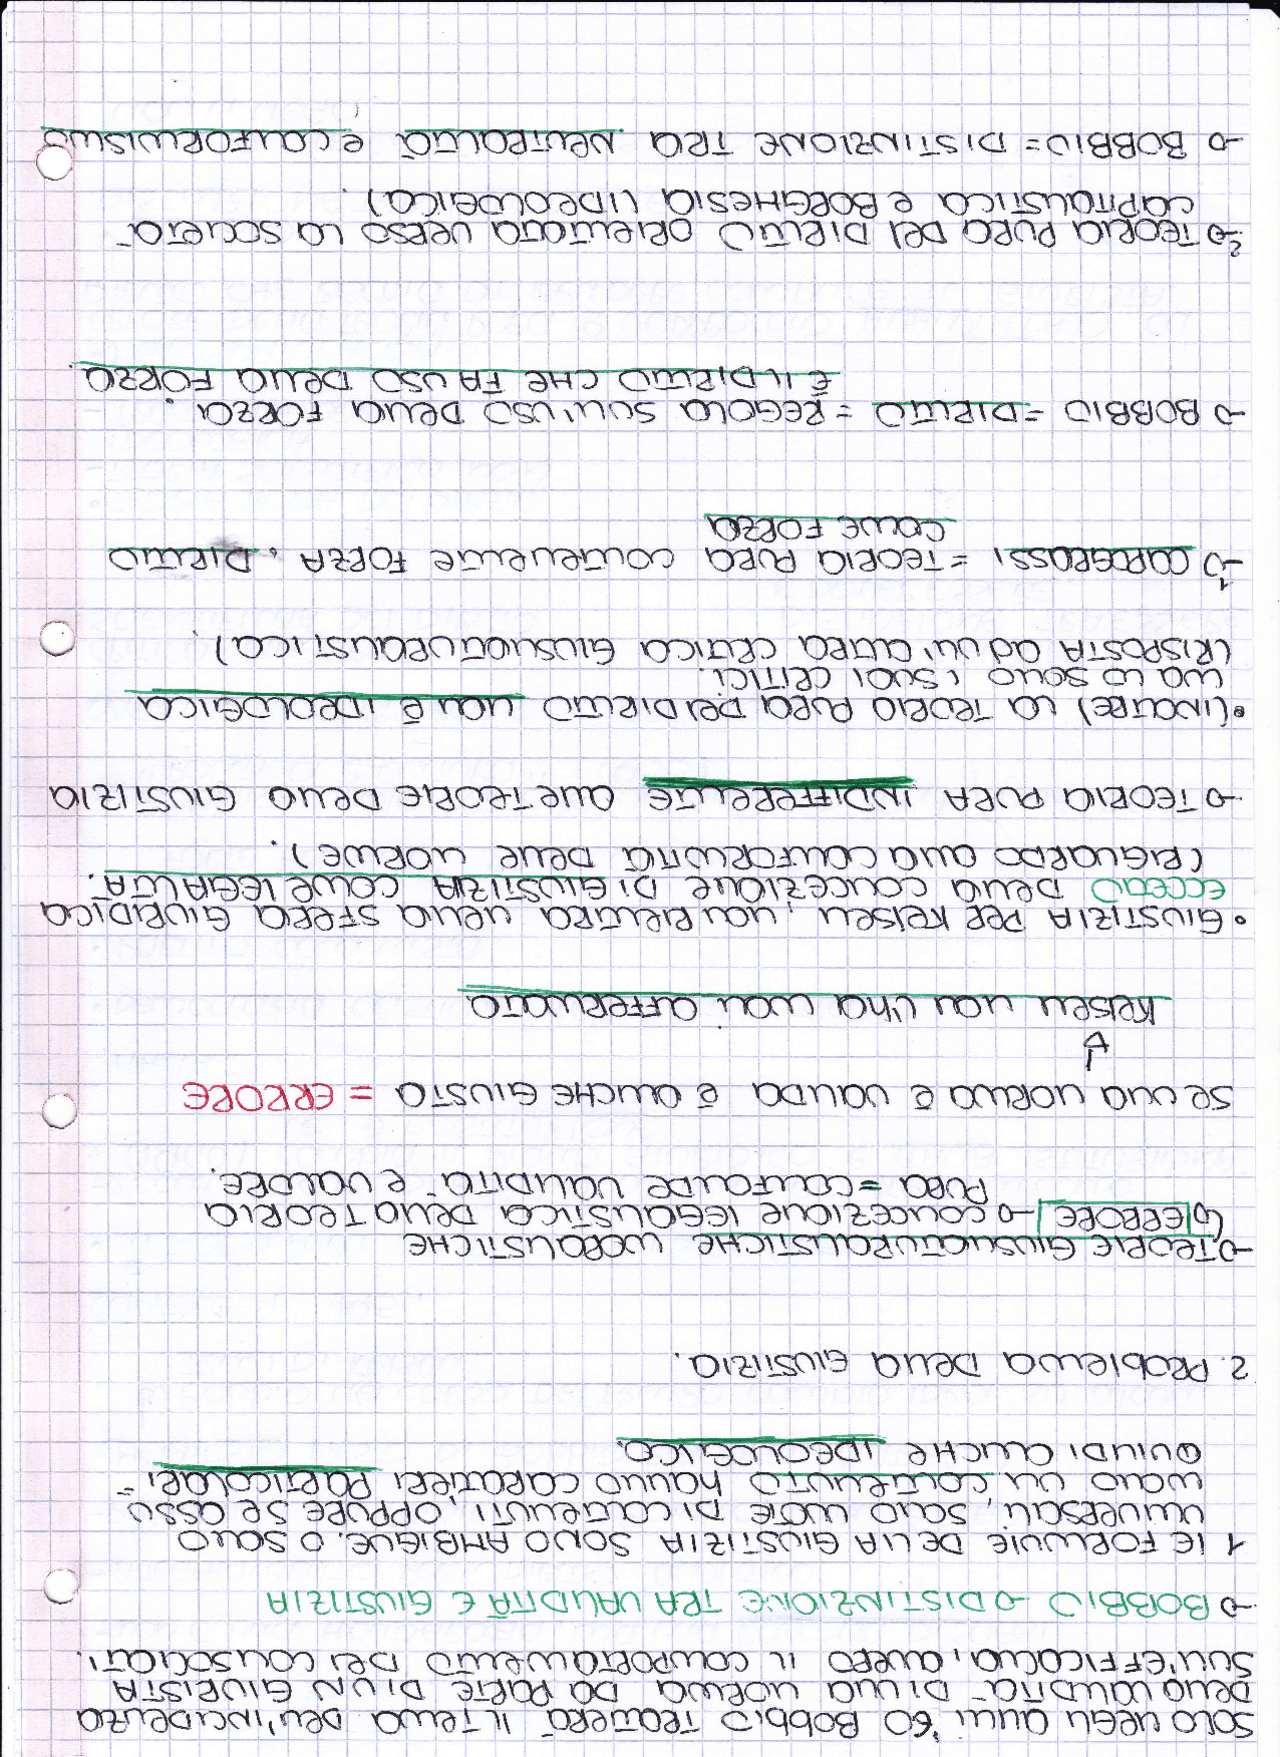 SOLO NEGLI ANNI '60 BOBBIO TRATTERA' IL TEMA DELL'INCIDENZA
DELLA VALIDITA' DI UNA NORMA DA PARTE DI UN GIURISTA
SULL'EFFICACIA, OVVERO IL COMPORTAMENTO DEI CONSOCIATI.
→ BOBBIO → DISTINZIONE TRA VALIDITÀ E GIUSTIZIA
1 LE FORMULE DELLA GIUSTIZIA SONO AMBIGUE. O SONO
UNIVERSALI, SONO VUOTE DI CONTENUTI, OPPURE SE ASSU
MONO UN CONTENUTO HANNO CARATTERI PARTICOLARI =
QUINDI ANCHE IDEOLOGICO.
2. PROBLEMA DELLA GIUSTIZIA.
→ TEORIE GIUSNATURALISTICHE MORALISTICHE
↳ ERRORE → CONCEZIONE LEGALISTICA DELLA TEORIA
PURA = CONFONDE VALIDITA' E VALORE.
SE UNA NORMA È VALIDA È ANCHE GIUSTA = ERRORE
↓
KELSEN NON L'HA MAI AFFERMATO
• GIUSTIZIA PER KELSEN, NON RIENTRA NELLA SFERA GIURIDICA
ECCETTO DELLA CONCEZIONE DI GIUSTIZIA COME LEGALITA'.
(RIGUARDO ALLA CONFORMITÀ DELLE NORME).
→ TEORIA PURA INDIFFERENTE ALLE TEORIE DELLA GIUSTIZIA
• (INOLTRE) LA TEORIA PURA DEL DIRITTO NON È IDEOLOGICA
MA LO SONO I SUOI CRITICI.
(RISPOSTA AD UN'ALTRA CRITICA GIUSNATURALISTICA)
→ 1 CAPOGRASSI = TEORIA PURA CONTENENTE FORZA. DIRITTO
COME FORZA
→ BOBBIO = DIRITTO = REGOLA SULL'USO DELLA FORZA.
È IL DIRITTO CHE FA USO DELLA FORZA.
→ 2 TEORIA PURA DEL DIRITTO ORIENTATA VERSO LA SOCIETA'
CAPITALISTICA E BORGHESIA (IDEOLOGICA).
→ BOBBIO = DISTINZIONE TRA NEUTRALITÀ E CONFORMISMO